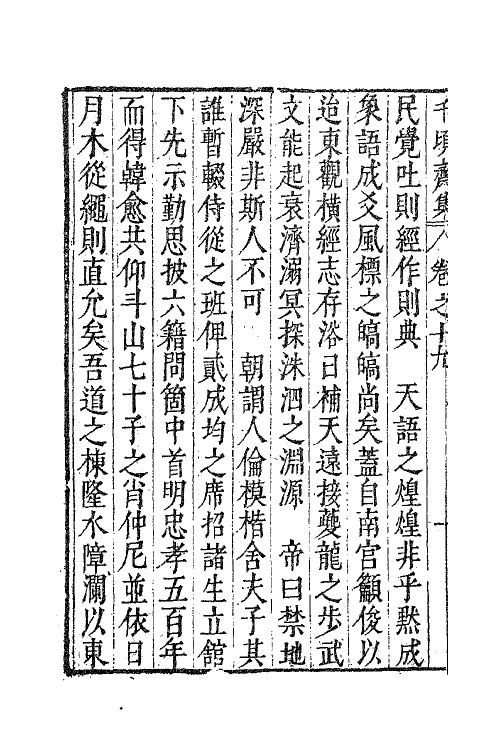 千頃齋集 卷之十九 一
民覺吐則經作則典 天語之煌煌非乎黙成
象語成爻風標之皜皜尚矣蓋自南宮籲俊以
迨東觀橫經志存浴日補天遠接夔龍之步武
文能起衰濟溺冥探洙泗之淵源 帝曰禁地
深嚴非斯人不可 朝謂人倫模楷舍夫子其
誰暫輟侍從之班俾貳成均之席招諸生立館
下先示勤思披六籍問箇中首明忠孝五百年
而得韓愈共仰斗山七十子之肖仲尼並依日
月木從繩則直允矣吾道之棟隆水障瀾以東